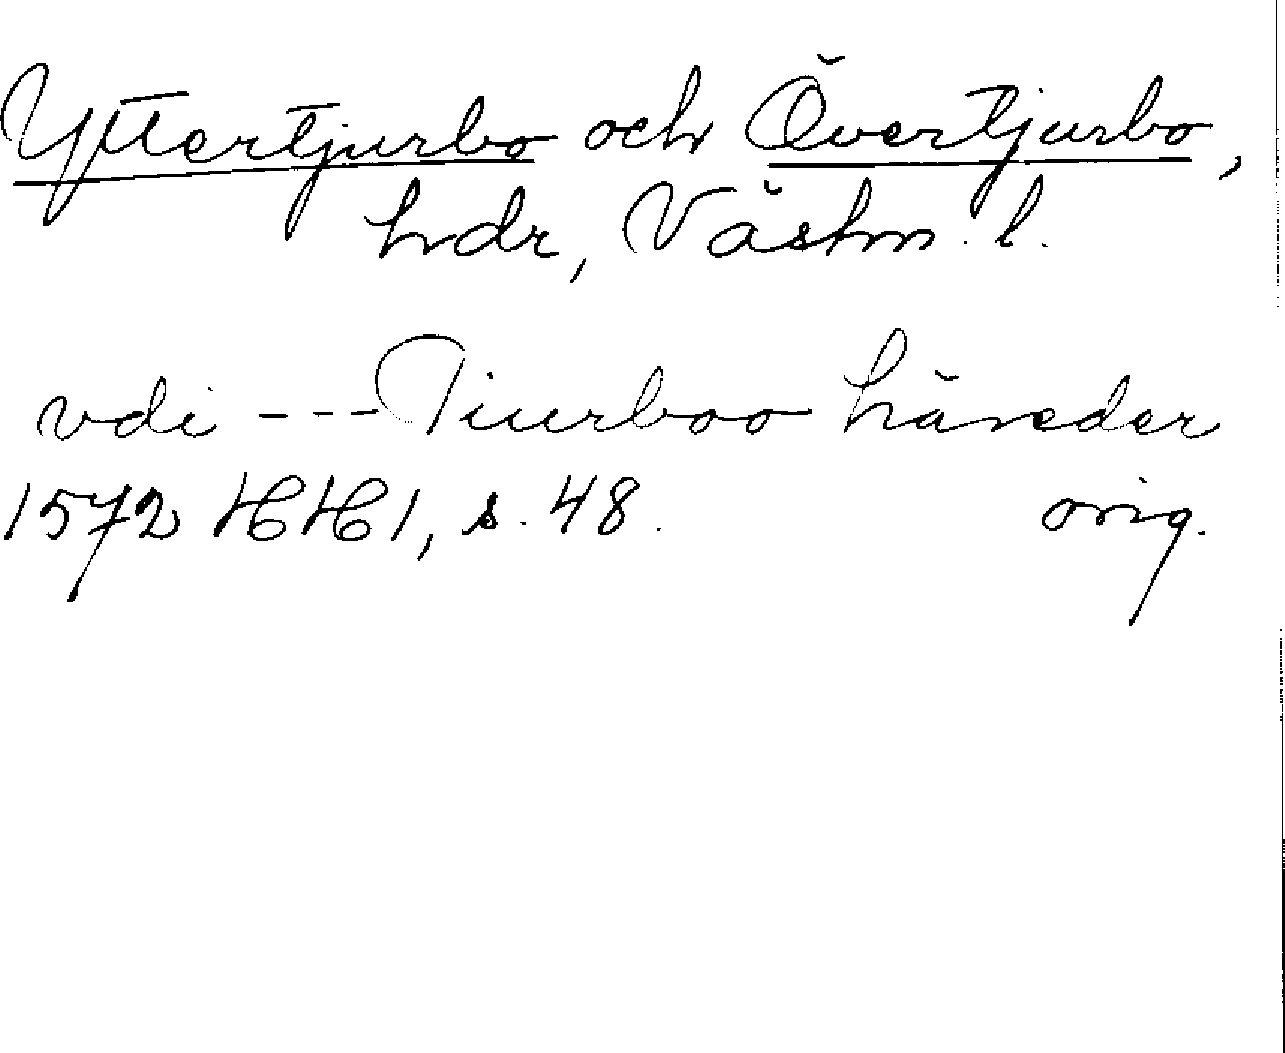 Yttertjurbo och Övertjurbo,
hdr, Västm. l.
vdi --- Tiurboo häreder
1572 HH 1, s. 48. orig.